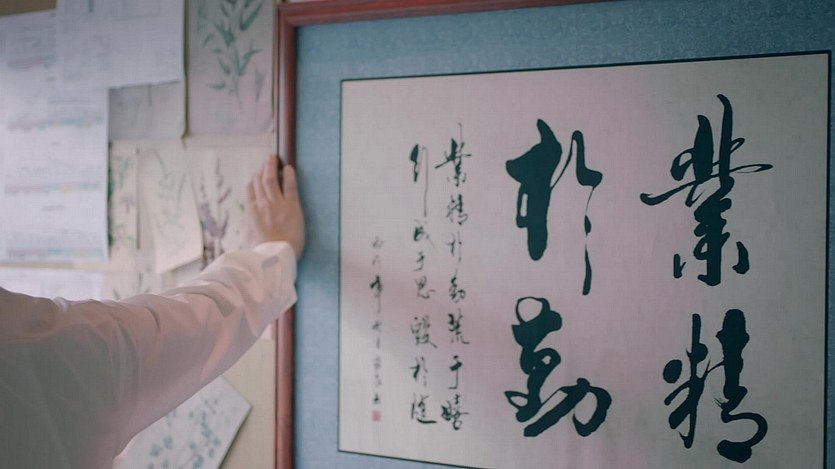 業精
於勤
業精於勤荒于嬉
行成于思毀於隨